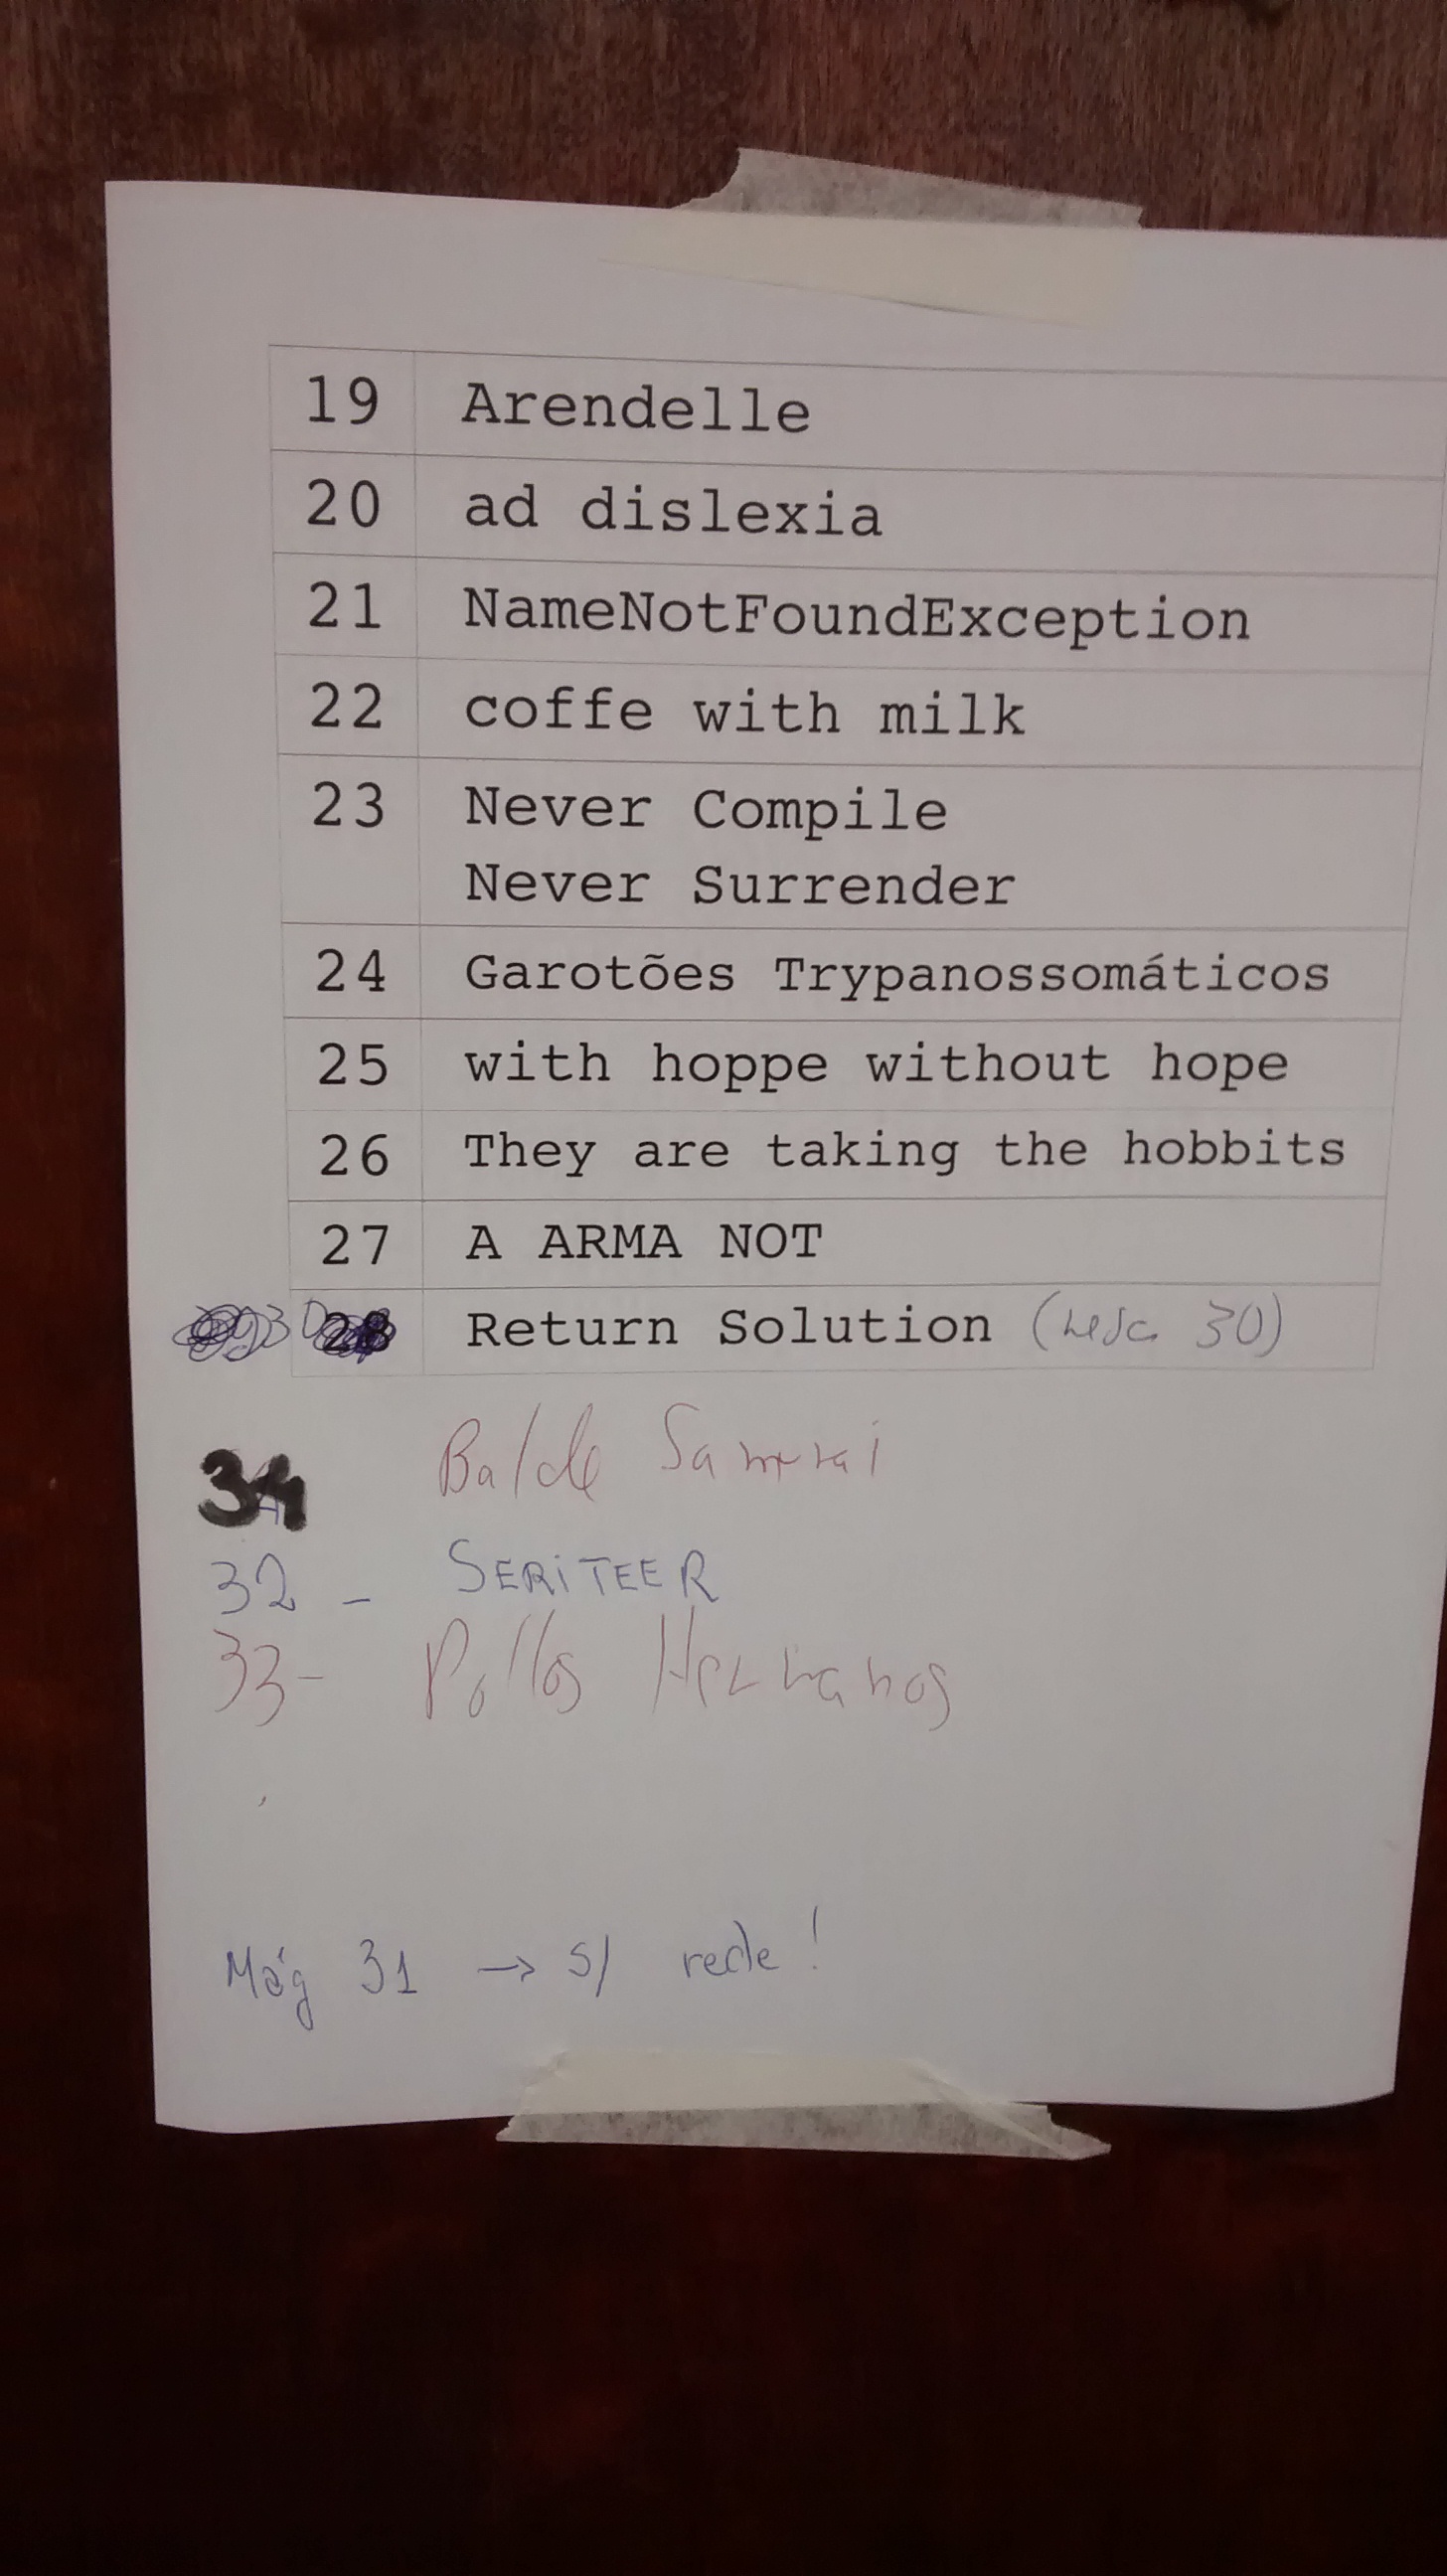 19 Arendelle
20 ad dislexia
21 NameNotFoundException
22 coffe with milk
23 Never Compile
Never Surrender
24 Garotões Trypanossomáticos
25 with hoppe without hope
26 They are taking the hobbits
27 A ARMA NOT
30 28 Return Solution (mesa 30)
34 Balde Samurai
32 - SERiTEER
33- Pollos Hermanos
Máq 31 → s/ rede!